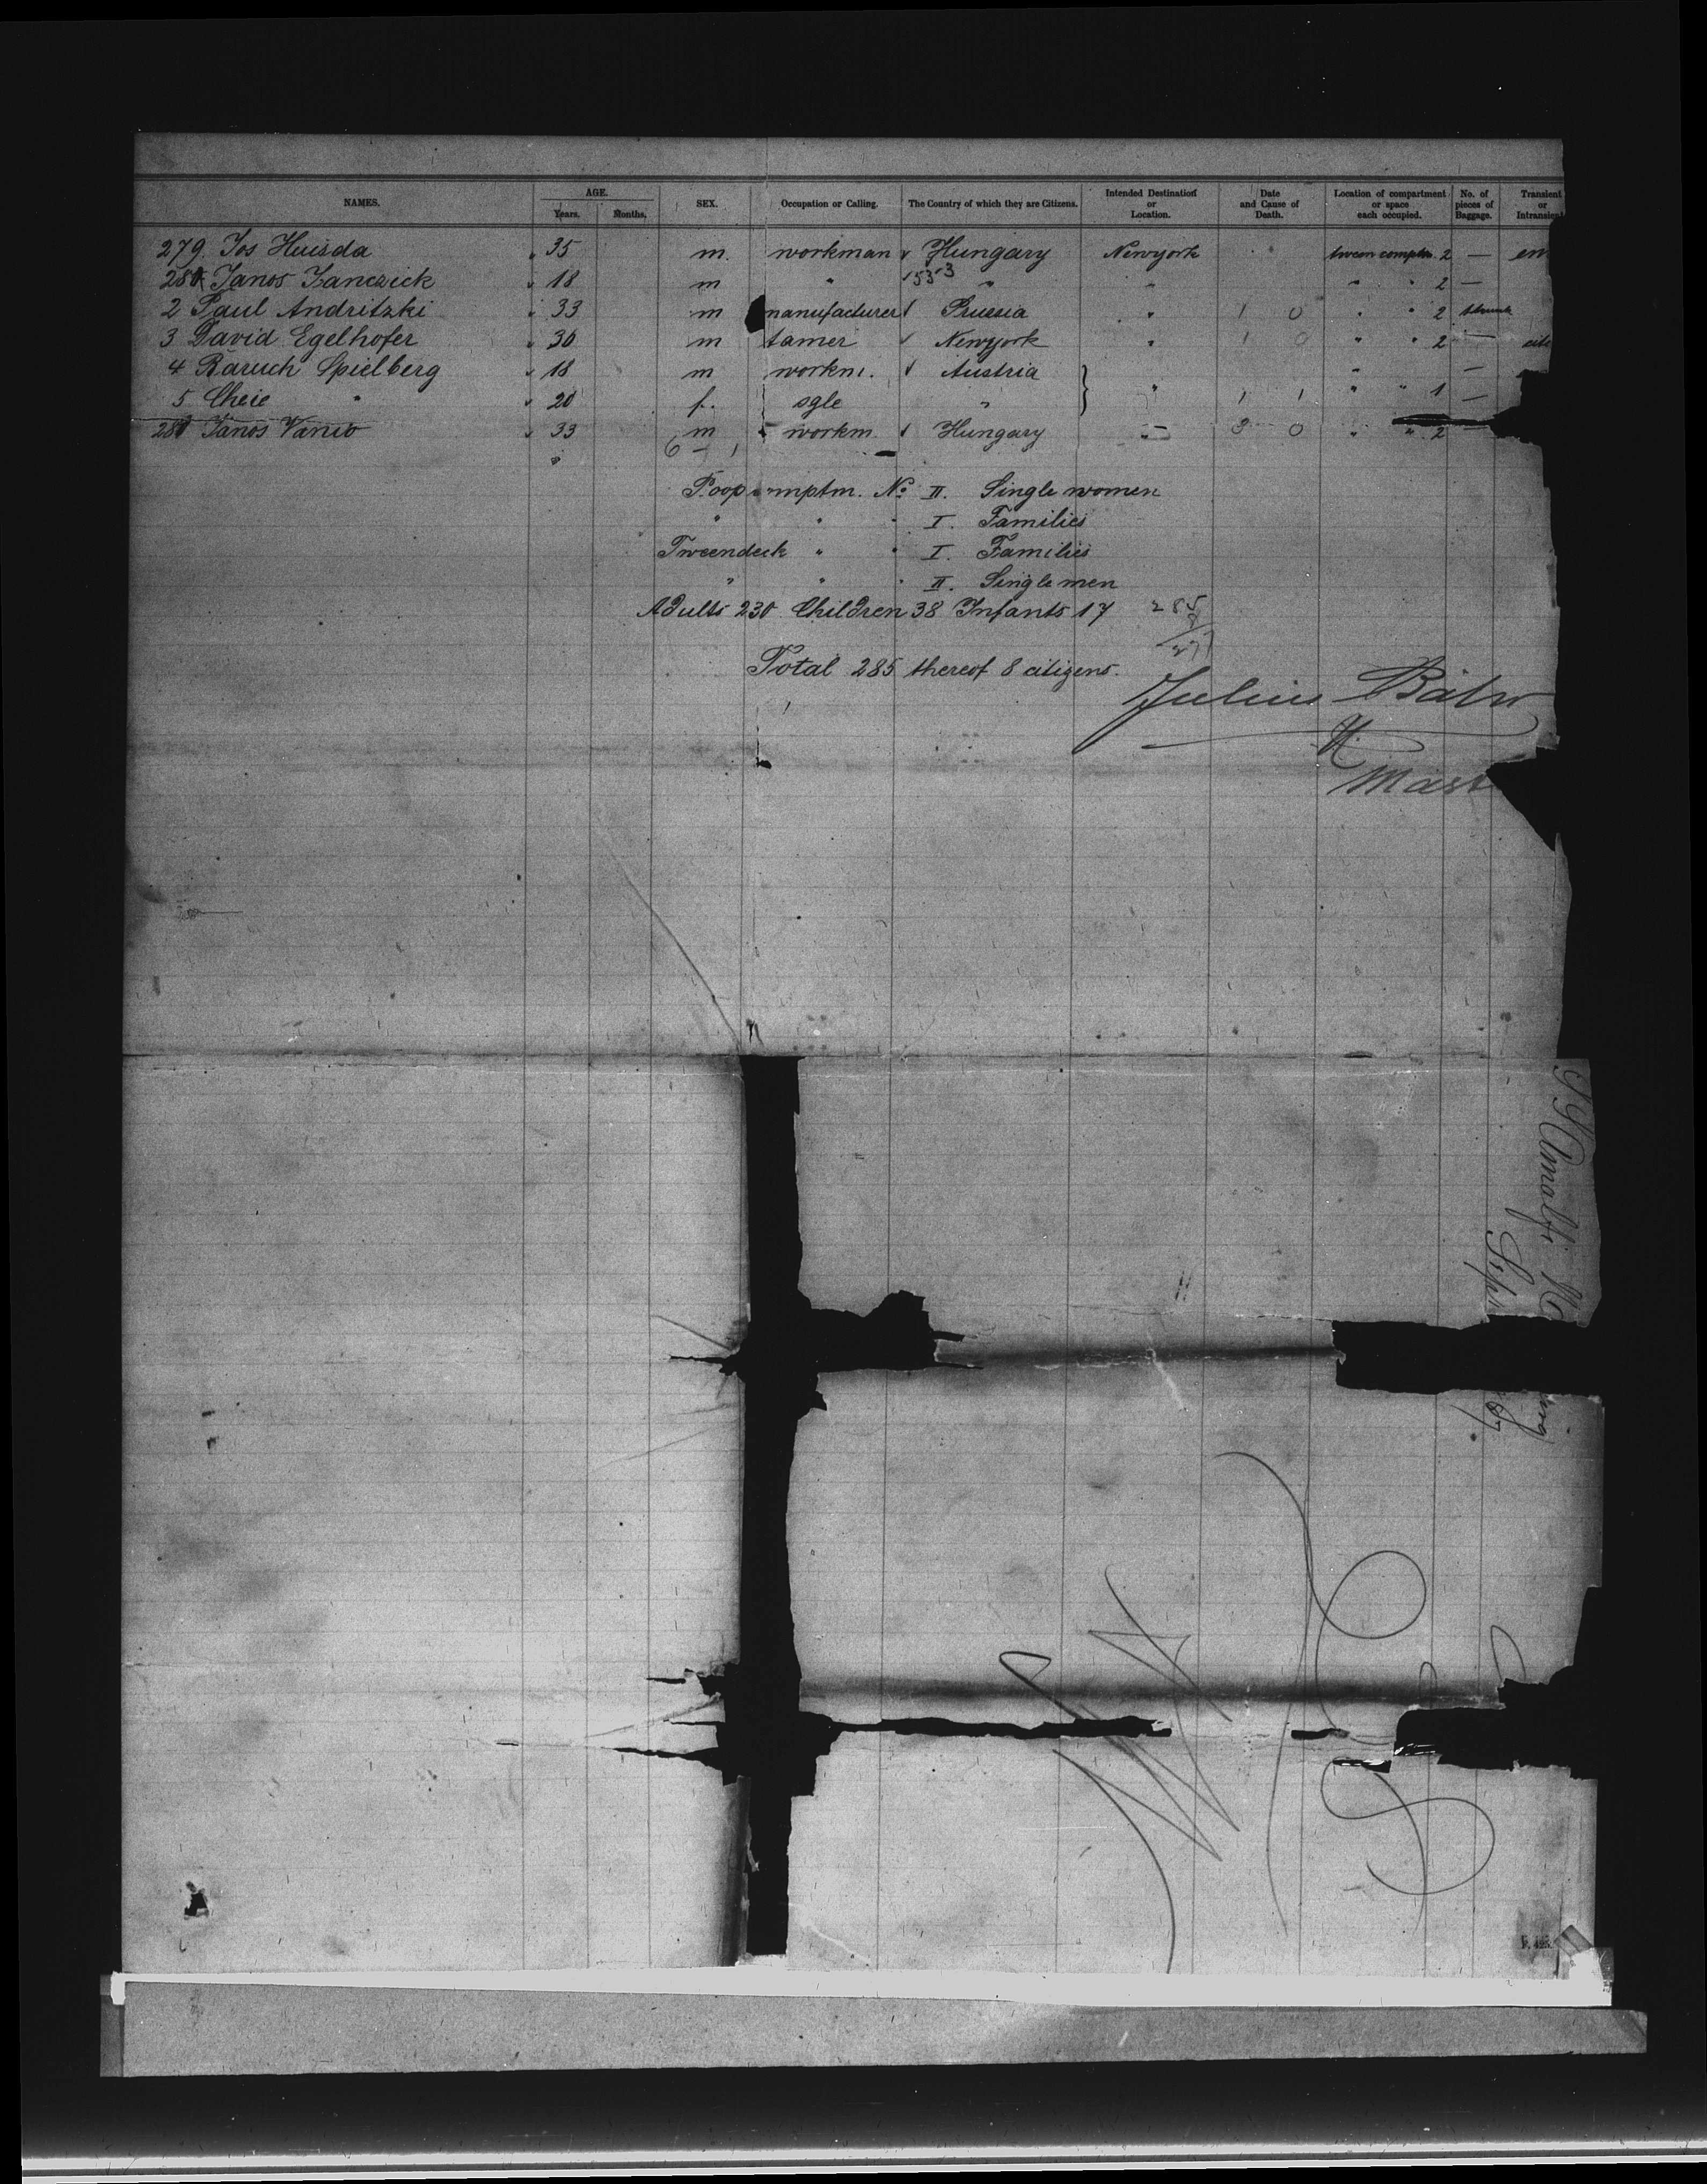 NAMES. AGE. Years. Months. SEX. Occupation or Calling. The Country of which they are Citizens. Intended Destination or Location. Date and Cause of Death. Location of compartment or space each occupied. No. of pieces of Baggage. Transient or
279. Jos Huisda " 35 m. workman Hungary Newyork tween comptm. 2 —
280 Janos Zanczick " 18 m " 1553 " " " " 2 —
2 Paul Andritzki " 33 m manufacturer Prussia " 1 0 " " 2 trunk
3 David Egelhofer " 30 m tamer Newyork " 1 0 " " 2 —
4 Baruch Spielberg " 18 m workm. Austria " —
5 Cheie " " 20 f. sgle " " 1 1 " " 1 —
Janos Vanio " 33 m workm. Hungary " 3 0 " " 2
6 - 1
Poop mptm. No II. Single women
" " " I. Families
Tweendeck " " I. Families
" " " II. Single men
Adults 230 Children 38 Infants 17 285
8
277
Total 285 thereof 8 citizens.
Julius
Mast
Amalfi
Sept